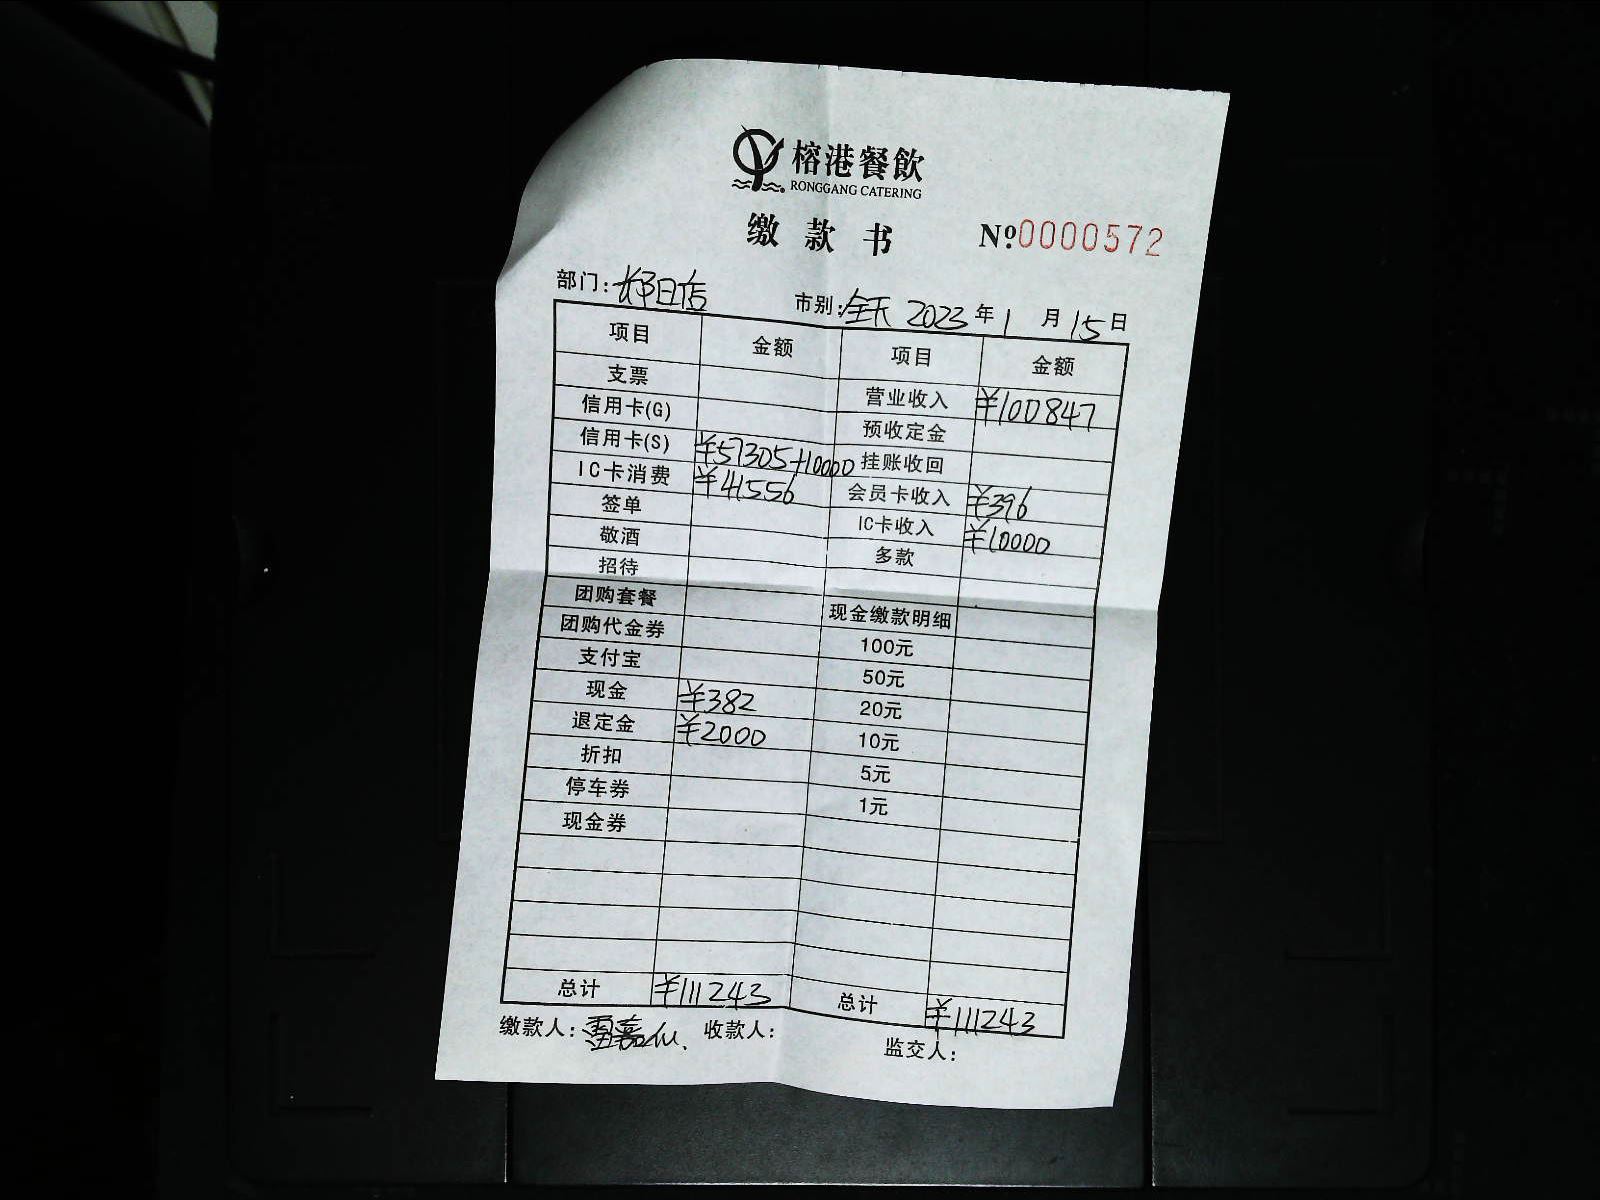 榕港餐飲
RONGGANG CATERING
缴款书 Nº:0000572
部门: 日店 市别: 全天 2023 年 1 月 15 日
项目 金额 项目 金额
支票 营业收入 ¥100847
信用卡(G) 预收定金
信用卡(S) ¥57305+10000 挂账收回
IC卡消费 ¥41556 会员卡收入 ¥396
签单 IC卡收入 ¥10000
敬酒 多款
招待
团购套餐 现金缴款明细
团购代金券 100元
支付宝 50元
现金 ¥382 20元
退定金 ¥2000 10元
折扣 5元
停车券 1元
现金券
总计 ¥111243 总计 ¥111243
缴款人: 收款人: 监交人: